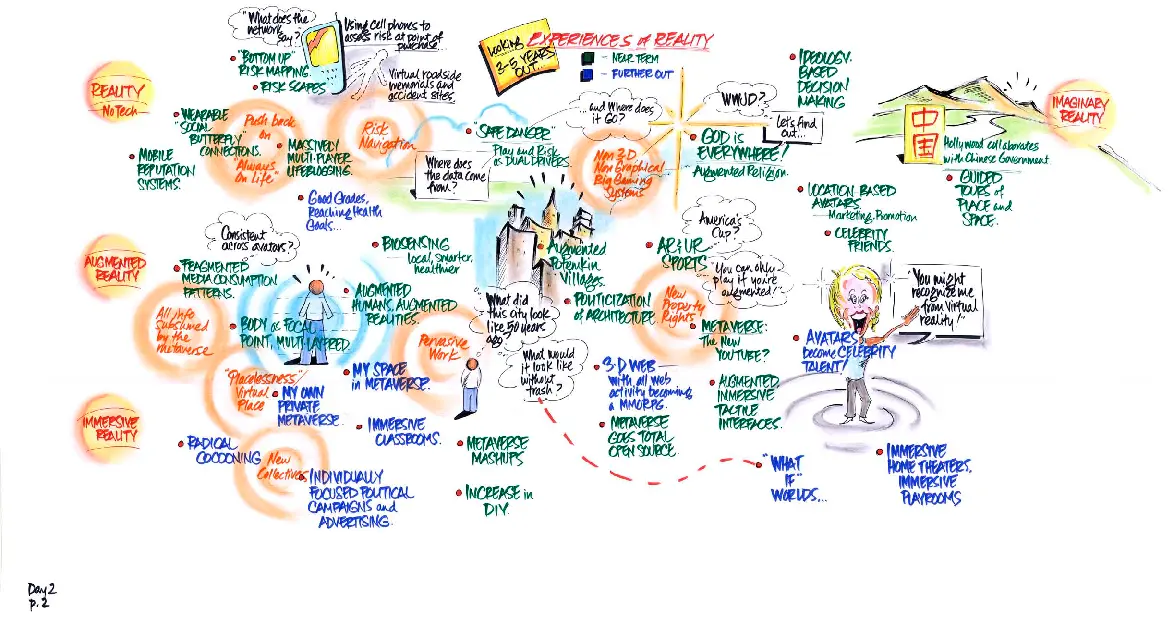 Looking
3-5 YEARS
OUT
EXPERIENCES of REALITY
- NEAR TERM
- FURTHER OUT
REALITY
No Tech
AUGMENTED
REALITY
IMMERSIVE
REALITY
IMAGINARY
REALITY
"What does the
network
say?"
Using cell phones to
assess risk at point of
purchase...
"BOTTOM UP"
RISK MAPPING.
RISK SCAPES
Virtual roadside
memorials and
accident sites
WEARABLE
"SOCIAL
BUTTERFLY"
CONNECTIONS.
Push back
on
"Always
On life"
MASSIVELY
MULTI-PLAYER
LIFEBLOGGING.
Risk
Navigation
MOBILE
REPUTATION
SYSTEMS.
Good Grades,
Reaching Health
Goals...
Where does
the data come
from?
"SAFE DANGER"
Play and Risk
as DUAL DRIVERS.
...and Where does
it Go?
Non 3-D
Non Graphical
Big Gaming
Systems
WWJD?
Let's find
out...
GOD is
EVERYWHERE!
Augmented Religion.
IDEOLOGY
BASED
DECISION
MAKING
中
国
Hollywood collaborates
with Chinese Government
GUIDED
TOURS of
PLACE and
SPACE.
LOCATION BASED
AVATARS.
Marketing, Promotion
CELEBRITY
FRIENDS.
Consistent
across avatars?
FRAGMENTED
MEDIA CONSUMPTION
PATTERNS.
BIOSENSING
local, smarter,
healthier
AUGMENTED
HUMANS, AUGMENTED
REALITIES.
All info
Subsumed
by the
metaverse
BODY as FOCAL
POINT, MULTI-LAYERED.
Pervasive
Work
What did
this city look
like 50 years
ago
What would
it look like
without
trash?
Augmented
Potemkin
Villages.
POLITICIZATION
of ARCHITECTURE.
America's
Cup?
AR & VR
SPORTS
"You can only
play if you're
augmented!"
New
Property
Rights
METAVERSE:
The New
YOUTUBE?
AVATARS
become CELEBRITY
TALENT!
"You might
recognize me
from Virtual
reality!"
"Placelessness"
Virtual
Place
MY OWN
PRIVATE
METAVERSE.
MY SPACE
in METAVERSE.
3-D WEB
with all web
activity becoming
a MMORPG.
AUGMENTED,
IMMERSIVE
TACTILE
INTERFACES.
RADICAL
COCOONING
New
Collectives
IMMERSIVE
CLASSROOMS.
METAVERSE
MASHUPS
METAVERSE
GOES TOTAL
OPEN SOURCE.
INDIVIDUALLY
FOCUSED POLITICAL
CAMPAIGNS and
ADVERTISING.
INCREASE in
DIY.
"WHAT
IF"
WORLDS...
IMMERSIVE
HOME THEATERS,
IMMERSIVE
PLAYROOMS
Day 2
p. 2